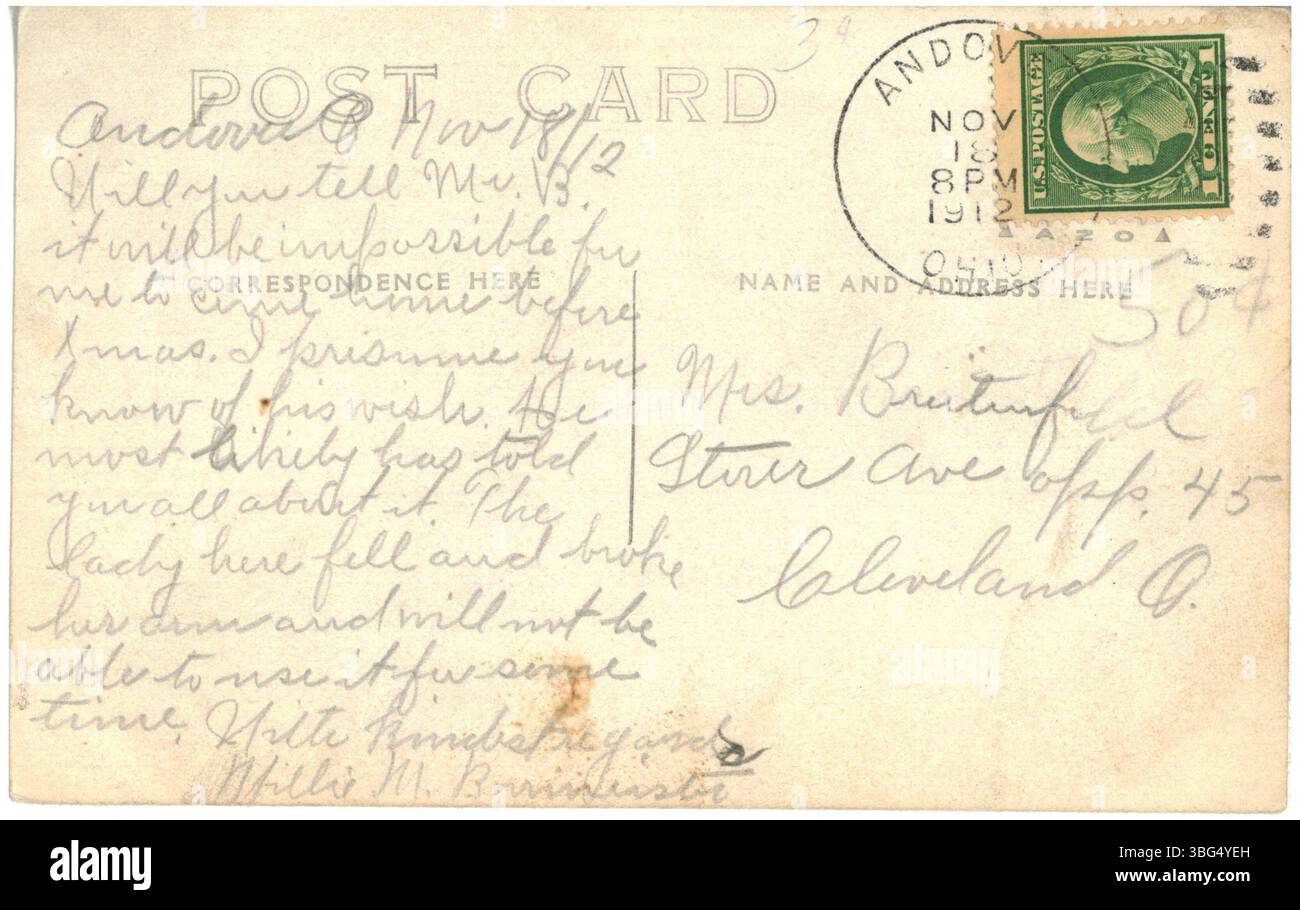 POST CARD
3¢
Andover O Nov 18/12
Will you tell Mr. B.
it will be impossible for
CORRESPONDENCE HERE
me to come home before
Xmas. I presume you
know of his wish. He
most likely has told
you all about it. The
lady here fell and broke
her arm and will not be
able to use it for some
time. With kindest regards
Millie M. Burmeister
ANDOV
NOV
18
8PM
1912
OHIO
U.S. POSTAGE
1 CENT 1
AZO
NAME AND ADDRESS HERE
50¢
Mrs.
Storer Ave opp. 45
Cleveland O.
alamy
Image ID: 3BG4YEH
www.alamy.com